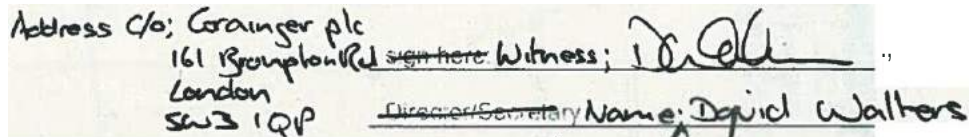 Address c/o; Grainger plc
161 Brompton Rd sign here Witness;
London
SW3 1QP Director/Secretary Name; David Walters